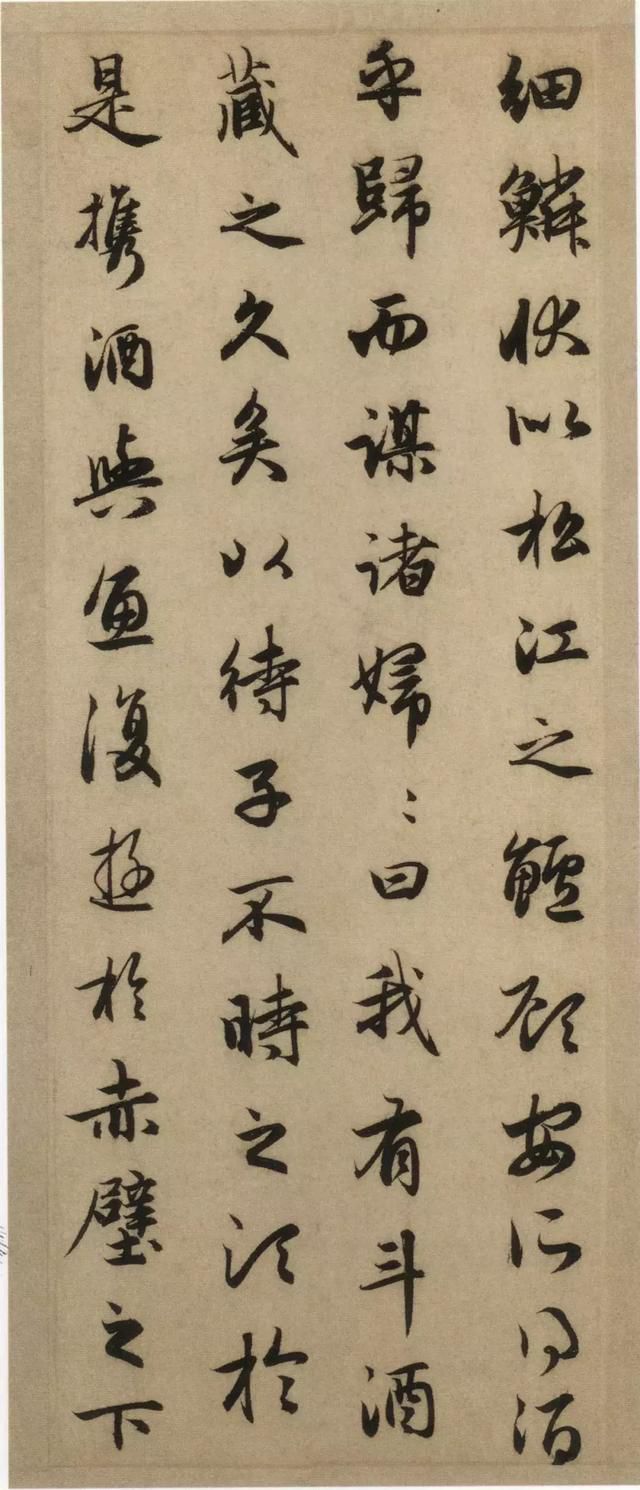 細鱗狀似松江之鱸顧安所得酒
乎歸而謀諸婦〻曰我有斗酒
藏之久矣以待子不時之須於
是携酒與魚復遊於赤壁之下